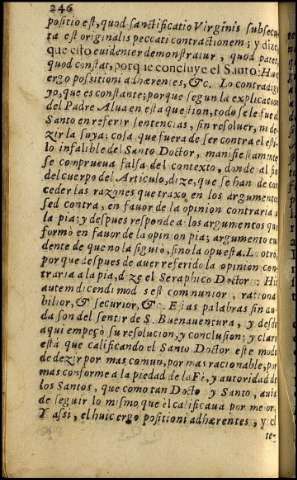 246
positio est, quod sanctificatio Virginis subsecu-
ta est originalis peccati contractionem; y dize,
que esto euidenter demonstratur, quod patet,
quod constat, porque concluye el Santo: Huic
ergo positioni adhærentes, &c. Lo contradigo
yo, que es constante; porque segun la explicacion
del Padre Alua en esta question, todo se le fue al
Santo en referir sentencias, sin resoluer, ni de-
zir la suya; cosa que fuera de ser contra el esti-
lo infalible del Santo Doctor, manifiestamente
se comprueua falsa del contexto, donde al fin
del cuerpo del Articulo, dize, que se han de con-
ceder las razones que traxo en los argumentos
sed contra, en fauor de la opinion contraria a
la pia; y despues responde a los argumentos que
formò en fauor de la opinion pia; argumento eui-
dente de que no la siguiò, sino la opuesta. Lo otro,
por que despues de auer referido la opinion con-
traria a la pia, dize el Seraphico Doctor: Hic
autem dicendi modus est communior, rationa-
bilior, & securior, &c. Estas palabras sin du-
da son del sentir de S. Buenauentura, y desde
aqui empeçò su resolucion, y conclusion; y claro
està que calificando el Santo Doctor este modo
de dezir por mas comun, por mas racionable, por
mas conforme a la piedad de la Fè, y autoridad de
los Santos, que como tan Docto y Santo, auia
de seguir lo mismo que el calificaua por mejor.
Y assi, el huic ergo positioni adhærentes, y el
te-